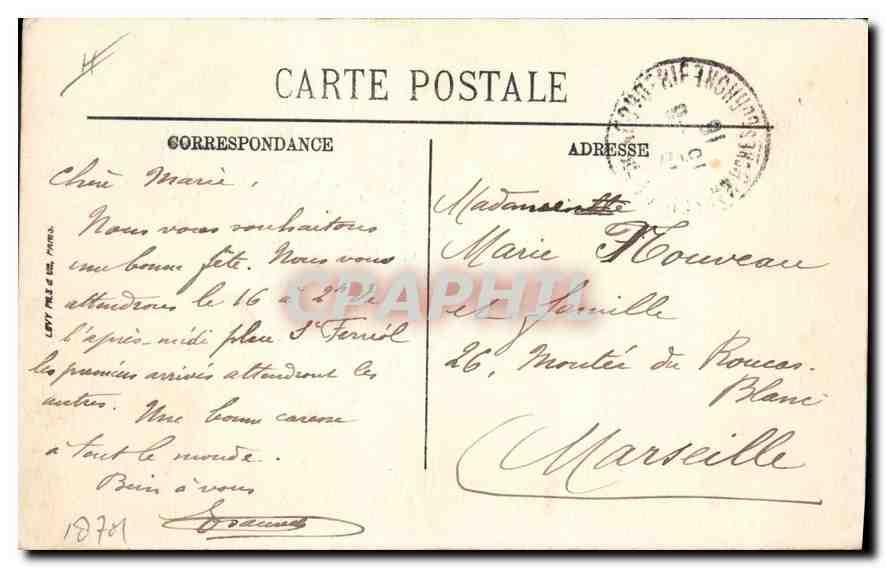 CARTE POSTALE
CORRESPONDANCE
Chère Marie,
Nous vous souhaitons
une bonne fête. Nous vous
attendrons le 16 à 2h de
l'après-midi place St Ferréol
les premiers arrivés attendront les
autres. Une bonne caresse
à tout le monde.
Bien à vous
18701
LEVY FILS & CIE, PARIS.
ADRESSE
Madame
Marie Nouveau
et famille
26, Montée du Roucas-
Blanc
Marseille
CPAPHIL